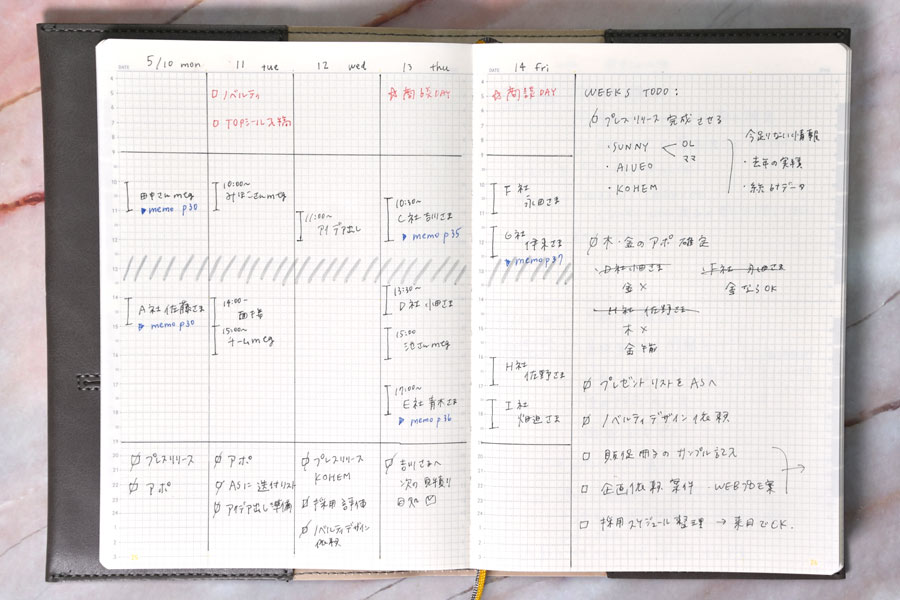 5/10 mon
11 tue
12 wed
13 thu
14 fri
□ ノベルティ
□ TOPシールス稿
☆ 商談DAY
☆ 商談DAY
田中さんmtg
▶memo p30
10:00〜
みほこさんmtg
11:00〜
アイデア出し
10:30〜
C社 吉川さま
▶ memo p35
F社
永田さま
G社
伊東さま
▶memo p37
A社 佐藤さま
▶ memo p30
14:00〜
面接
15:00〜
チームmtg
13:30〜
D社 小田さま
15:00
池さんmtg
17:00〜
E社 青木さま
▶ memo p36
H社
佐野さま
I社
畑辺さま
プレスリリース
アポ
アポ
ASに送付リスト
アイデア出し準備
プレスリリース
KOHEM
採用評価
ノベルティデザイン
依頼
吉川さまへ
次の見積り
WEEKS TODO:
プレスリリース 完成させる
・SUNNY OL
ママ
・AIUEO
・KOHEM
今足りない情報
・去年の実積
・統計データ
木・金のアポ確定
・D社 小田さま
金×
・F社 永田さま
金ならOK
・H社 佐野さま
木×
金午前
プレゼントリストをASへ
ノベルティデザイン依頼
□ 販促冊子のサンプル
□ 企画依頼案件 WEB
□ 採用スケジュール整理 → 来月でOK.